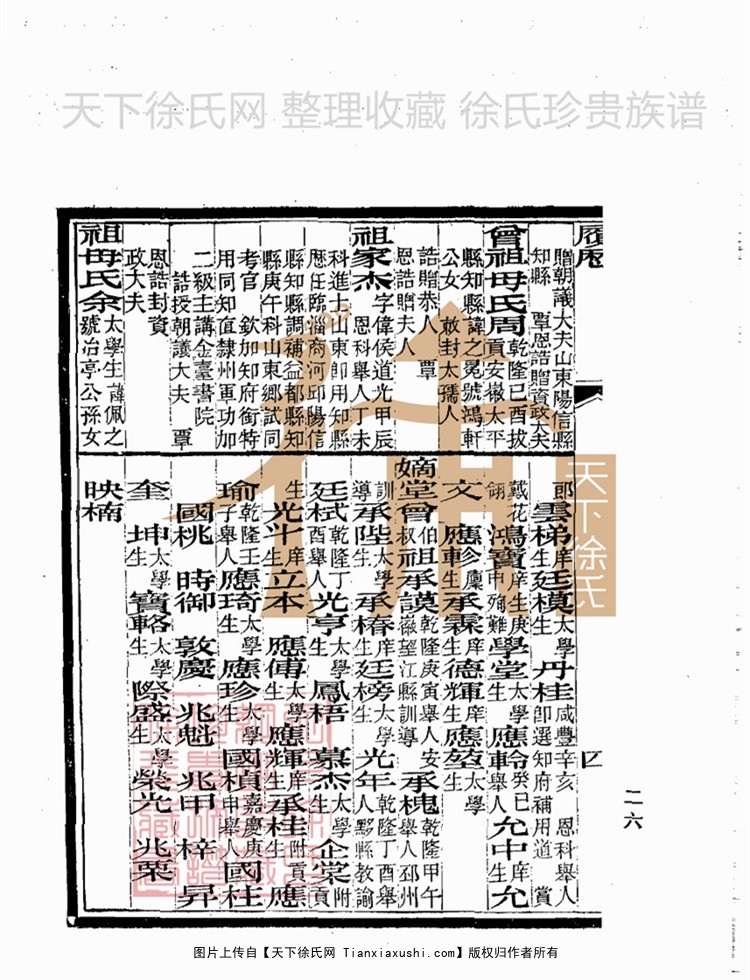 天下徐氏网 整理收藏 徐氏珍贵族谱
履歷
贈朝議大夫山東陽信縣
知縣 覃恩誥贈資政大夫
曾祖母氏周乾隆己酉拔
貢安徽太平
縣知縣諱之冕號鴻軒
公女 敕封太孺人
誥贈恭人 覃
恩誥贈夫人
祖家杰字偉侯道光甲辰
恩科舉人丁未
科進士山東即用知縣
歷任臨淄商河邱陽信
縣知縣調補益都縣知
縣庚午科山東鄉試同
考官 欽加知府銜特
用同知直隸州軍功加
二級主講金臺書院
誥授朝議大夫 覃
恩誥封資
政大夫
祖母氏余太學生諱佩之
號冶亭公孫女
郎雲梯庠生廷模太學生 丹桂咸豐辛亥 恩科舉人
即選知府補用道 賞
戴花翎 鴻寶庠生庚申殉難 學堂太學生 應軫癸巳舉人 允中庠生 允
文 應軫生 應軒廩生 承霖庠生 德輝庠生 應
太學生
嫡堂曾伯叔祖承謨乾隆庚寅舉人安徽望江縣訓導 承槐乾隆甲午舉人邳州
訓導 承陛太學生 承椿庠生 廷榜太學生 光年乾隆丁酉舉人黟縣教諭
廷栻乾隆丁酉舉人 光亨太學生 鳳梧 慕杰太學生 企棠附貢
生 光斗庠生 立本 應傅太學生 應輝庠生 承桂附貢生 應
瑜乾隆壬子舉人 應琦太學生 應珍太學生 國楨嘉慶庚申舉人 國柱
國桃 時御 敦慶 兆魁 兆甲 梓 昇
奎 坤太學生 寶輅太學生 際盛太學生 榮光 兆栗
映楠
二六
天下徐氏
图片上传自【天下徐氏网 Tianxiaxushi.com】版权归作者所有